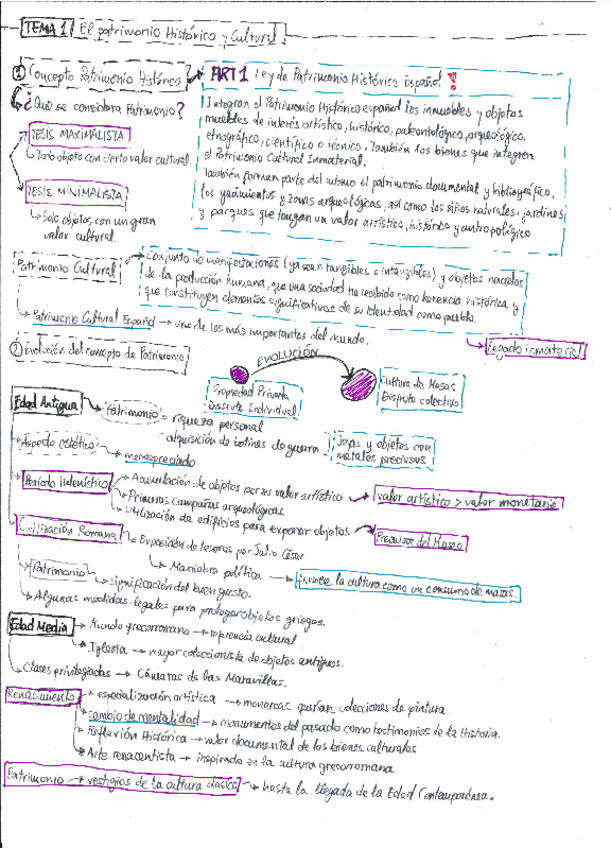 TEMA 1 El patrimonio Histórico y Cultural
① Concepto Patrimonio Histórico → ART 1 Ley de Patrimonio Histórico Español !
¿Qué se considera Patrimonio?
TESIS MAXIMALISTA
↳ Todo objeto con cierto valor cultural.
TESIS MINIMALISTA
↳ Solo objetos con un gran
valor cultural.
Integran el Patrimonio Histórico español los inmuebles y objetos
muebles de interés artístico, histórico, paleontológico, arqueológico,
etnográfico, científico o técnico. También los bienes que integren
el Patrimonio Cultural Inmaterial.
También forman parte del mismo el patrimonio documental y bibliográfico,
los yacimientos y zonas arqueológicas, así como los sitios naturales, jardines
y parques que tengan un valor artístico, histórico y antropológico
Patrimonio Cultural → Conjunto de manifestaciones (ya sean tangibles e intangibles) y objetos nacidos
de la producción humana, que una sociedad ha recibido como herencia histórica y
que constituyen elementos significativos de su identidad como pueblo.
↳ Patrimonio Cultural Español → uno de los más importantes del mundo.
→ Legado inmaterial
② Evolución del concepto de Patrimonio
EVOLUCIÓN
Propiedad Privada
Disfrute Individual
Cultura de Masas
Disfrute colectivo
Edad Antigua → Patrimonio = riqueza personal
adquisición de botines de guerra → Joyas y objetos con
metales preciosos
→ Aspecto estético → menospreciado
→ Período Helenístico → Acumulación de objetos por su valor artístico → valor artístico > valor monetario
→ Primeras campañas arqueológicas
→ Utilización de edificios para exponer objetos → Precursor del Museo
→ Civilización Romana → Exposición de tesoros por Julio César
↳ Maniobra política →
la cultura como un consumo de masas.
→ Patrimonio → significación del buen gusto.
→ Algunas medidas legales para proteger objetos griegos.
Edad Media → Mundo grecorromano → herencia cultural
→ Iglesia → mayor coleccionista de objetos antiguos.
→ Clases privilegiadas → Cámaras de las Maravillas.
Renacimiento → especialización artística → monarcas querían colecciones de pintura.
→ Cambio de mentalidad → monumentos del pasado como testimonios de la Historia.
→ Reflexión Histórica → valor documental de los bienes culturales
→ Arte renacentista → inspirado en la cultura grecorromana
Patrimonio → vestigios de la cultura clásica → hasta la llegada de la Edad Contemporánea.